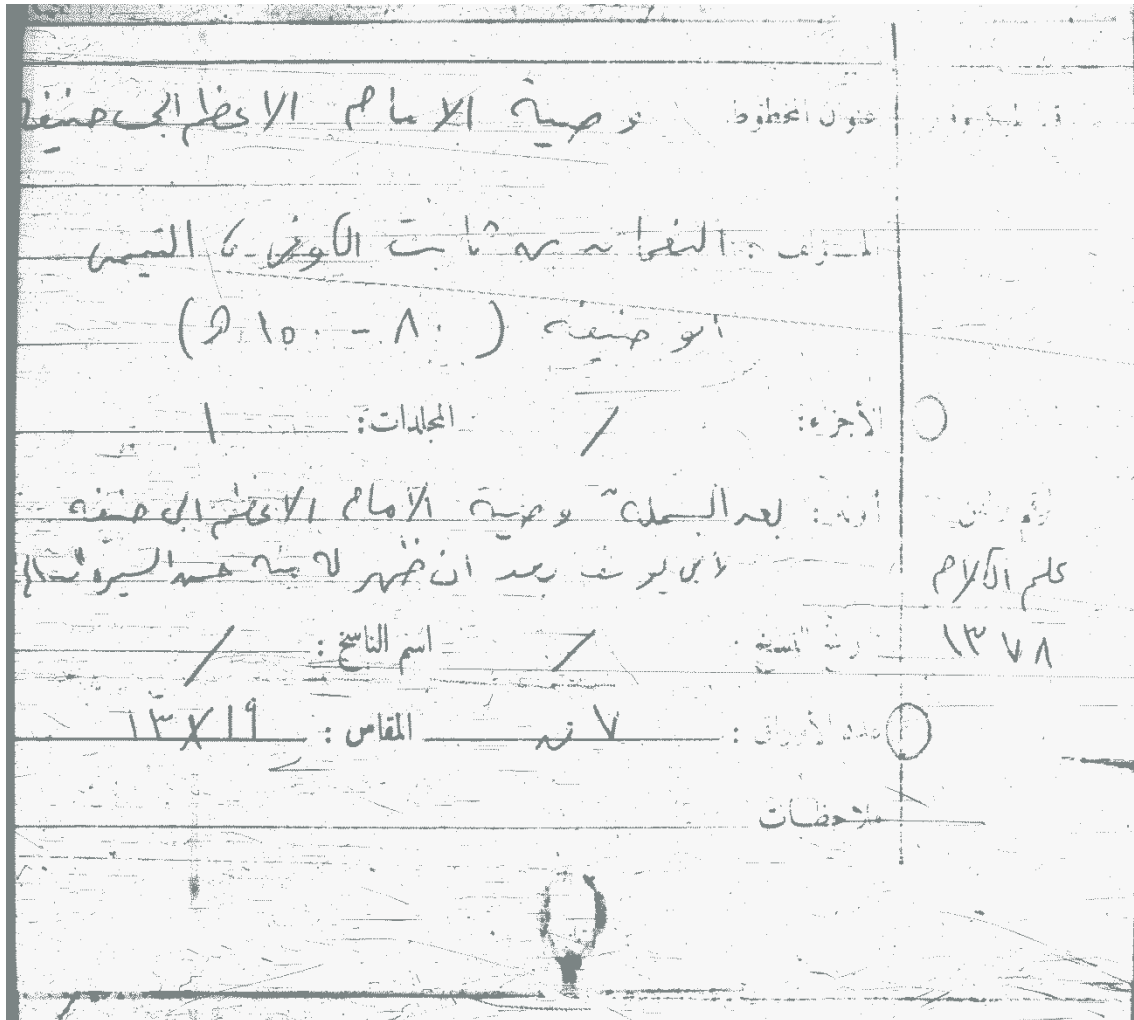 عنوان المخطوط وصية الامام الاعظم ابي حنيفه
المؤلف : النعمان بن ثابت الكوفي، التيمي
ابو حنيفه (٨٠ - ١٥٠ هـ)
الأجزاء: / المجلدات: ١
أوله: بعد البسملة وصية الامام الاعظم ابي حنيفه
لأبي يوسف بعد ان ظهر له منه حسن السيرة
علم الكلام
تاريخ النسخ : / اسم الناسخ : /
١٣٧٨
عدد الأوراق : ٧ ق المقاس : ١٩ X ١٣
ملاحظات